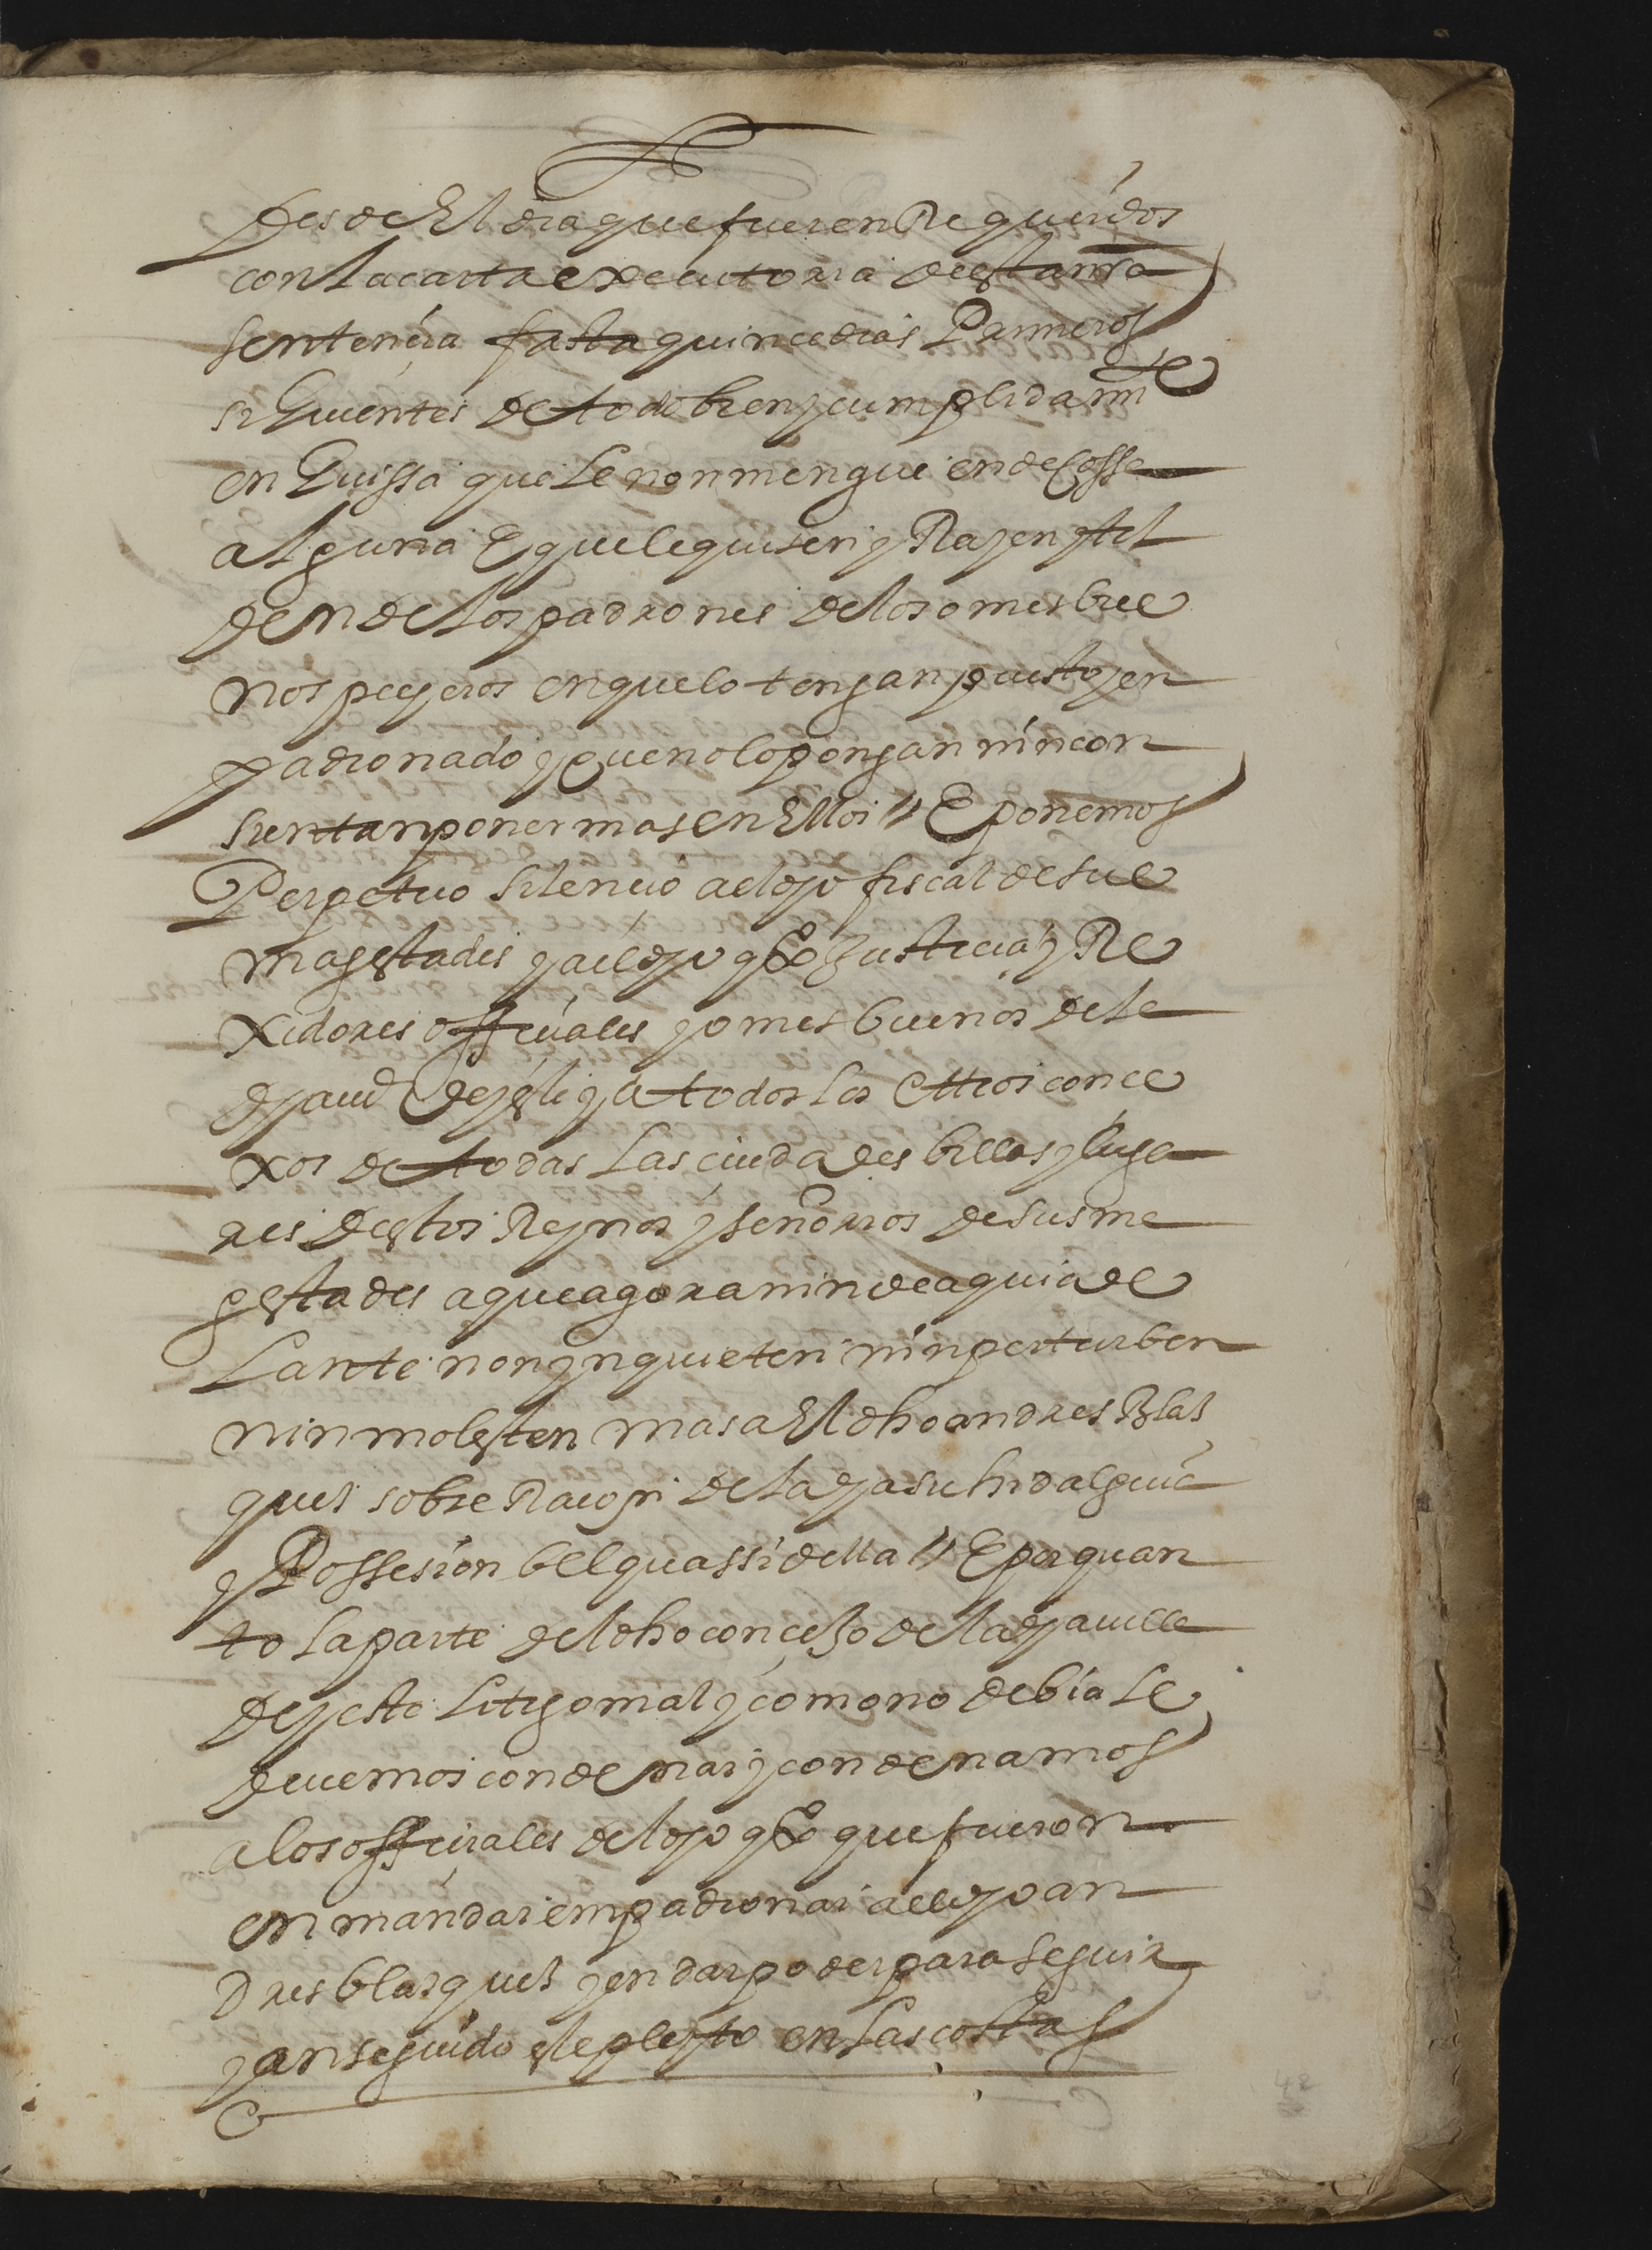 Desde El dia que fueren Requeridos
con la carta executoria de esta nra
sentençia fasta quinçe dias Primeros
siGuientes de todo bien y cumplidamte
en Guissa que le non mengue ende cossa
alguna E que le quiten y Rayen y til
den de los padrones de los omes bue
nos pecheros en que lo tengan puesto y en
padronado y que no lo pongan nin con
sientan poner mas en Ellos // E ponemos
Perpetuo silençio a el dho fiscal de sus
magestades y a el dho qo Justicia y Re
xidores offiçiales y omes buenos de la
dha uª de yeste y a todos los Ottros conce
xos de todas las çiudades billas y luga
res destos Reynos y señorios de sus ma
gestades a que agora nin de aqui ade
lante non ynquieten nin perturben
nin molesten mas a El dho andres Blas
ques sobre Raçon de la dha su hidalguia
y Possesion bel quassi della // E por quan
to la parte del dho conçejo de la dha uilla
de yeste litigo mal y como no debia le
deuemos condenar y condenamos
a los offiçiales del dho qo que fueron
en mandar empadronar a el dho an
dres blasques y en dar poder para seguir
y an seguido este pleyto en las costas